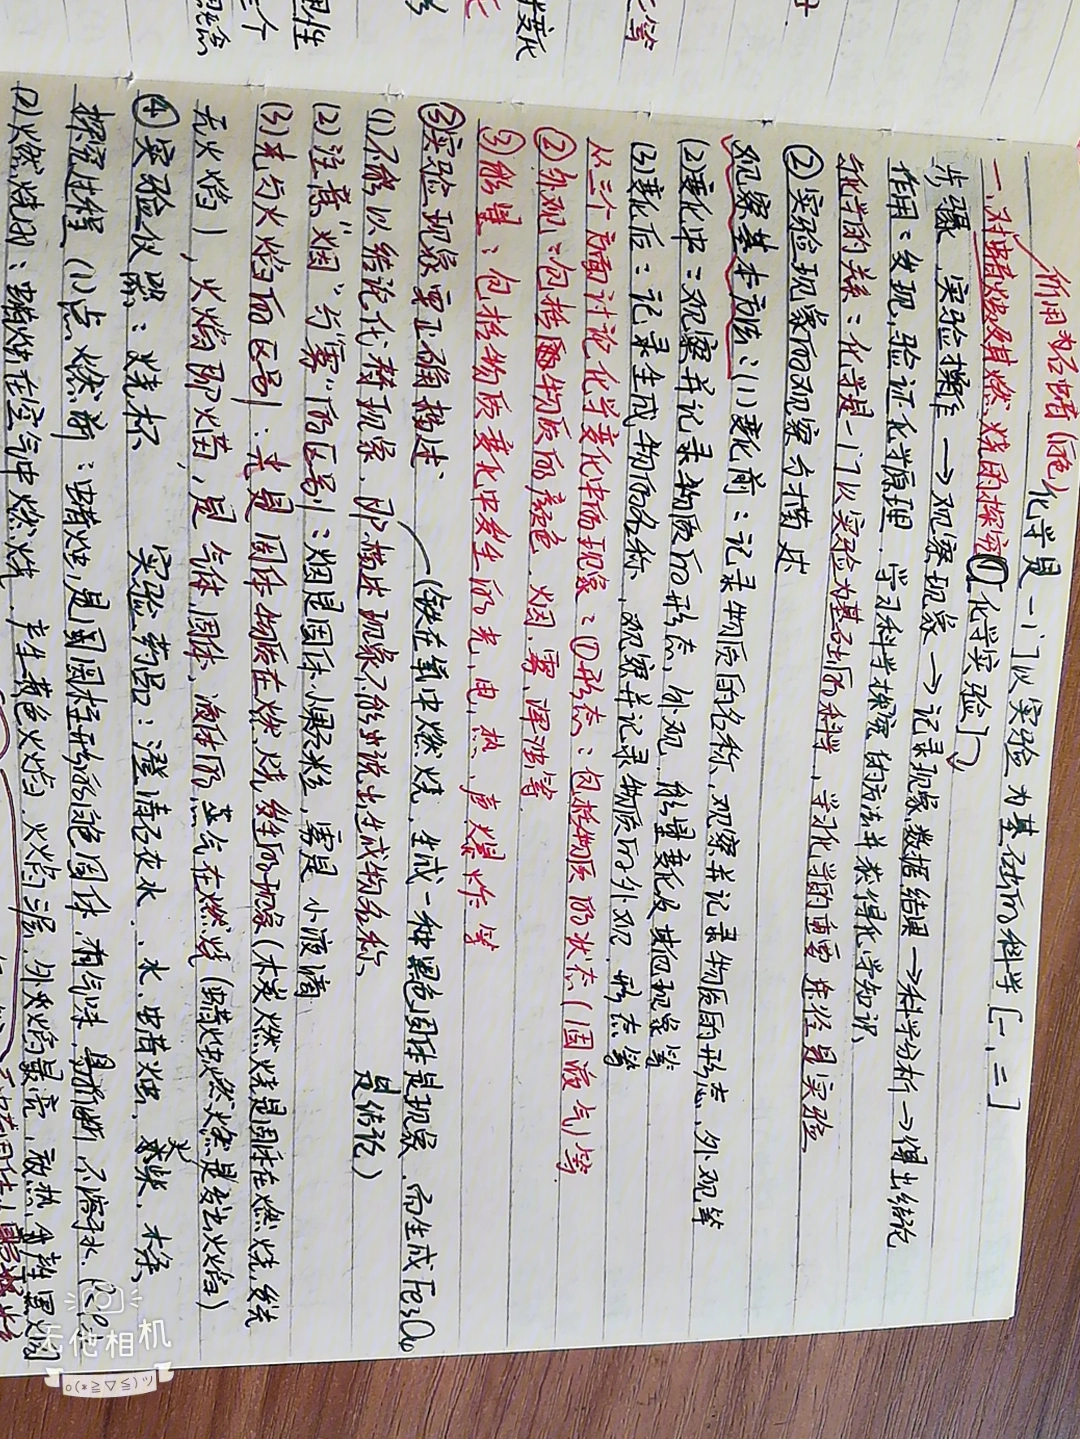 化学是一门以实验为基础的科学[一、三]
俗用为石蜡(白色)
一、对蜡烛及其燃烧的探究①[化学实验]
步骤 实验操作→观察现象→记录现象、数据结果→科学分析→得出结论
作用:发现,验证化学原理.学习科学探究的方法并获得化学知识、
与化学的关系:化学是一门以实验为基础的科学,学习化学的重要途径是实验
②实验现象的观察与描述
观察基本方法:(1)变化前:记录物质的名称、观察并记录物质的形态、外观等
(2)变化中:观察并记录物质的形态、外观、能量变化及其他现象等
(3)变化后:记录生成物的名称、观察并记录物质的外观、形态等
从三个方面讨论化学变化中的现象:①形态:包括物质的状态(固液气)等
②外观:包括物质的颜色、烟、雾、浑浊等
③能量:包括物质变化中发生的光、电、热、声、爆炸等
③实验现象要正确描述
(铁在氧中燃烧,生成一种黑色固体是现象,而生成Fe3O4
是结论)
(1)不能以结论代替现象.即描述现象不能说出生成物名称、
(2)注意"烟"与"雾"的区别:烟是固体小颗粒,雾是小液滴
(3)光与火焰的区别:光是固体物质在燃烧发生的现象(木炭燃烧是固体在燃烧,发光
无火焰),火焰即火苗,是气体,固体、液体的蒸气在燃烧(蜡烛燃烧是发出火焰)
④实验仪器:烧杯 实验药品:澄清石灰水、水、蜡烛、火柴、木条、
探究过程(1)点燃前:蜡烛,是圆柱形白色固体,有气味,易折断,不溶于水.
(2)燃烧时:蜡烛在空气中燃烧,产生黄色火焰,火焰三层,外焰最亮,放热,有黑烟
无他相机
o(*≧▽≦)ツ